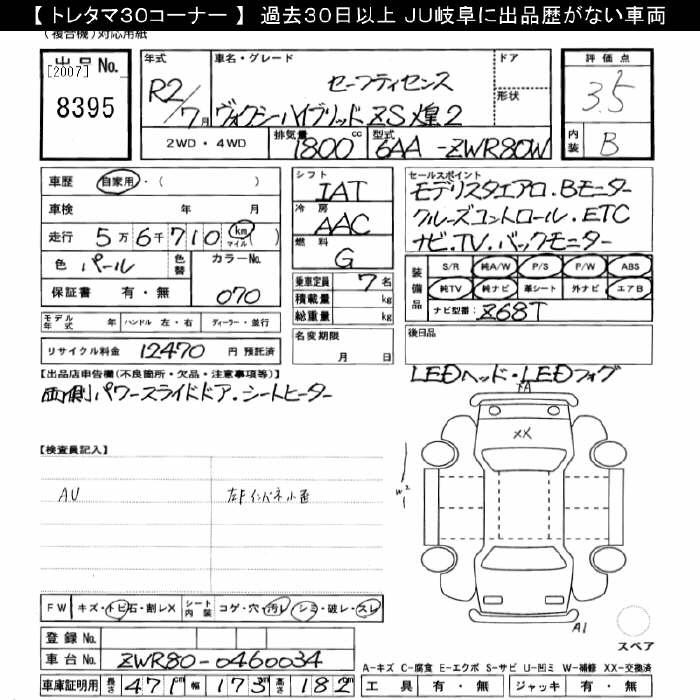 【トレタマ30コーナー】 過去30日以上 JU岐阜に出品歴がない車両
(複合機)対応用紙
出品No.
[2007]
8395
年式
R2/7月
車名・グレード
セーフティセンス
ヴォクシーハイブリッドZS煌2
ドア
形状
2WD・4WD
排気量
1800cc
型式
6AA-ZWR80W
評価点
3.5
内装
B
車歴 自家用・( )
車検 年 月
走行 5万6千710 km マイル( )
色 パール 色替 カラーNo. 070
保証書 有・無
モデル年式 年 ハンドル 左・右 ディーラー・並行
リサイクル料金 12470 円 預託済
シフト
IAT
冷房
AAC
燃料
G
乗車定員 7名
積載量 kg
総重量 kg
名変期限
月 日
セールスポイント
モデリスタエアロ.Bモニター
クルーズコントロール.ETC
ナビ.TV.バックモニター
装備品
S/R 純A/W P/S P/W ABS
純TV 純ナビ 革シート 外ナビ エアB
ナビ型番: Z68T
後日品
LEDヘッド・LEDフォグ
【出品店申告欄(不良箇所・欠品・注意事項等)】
両側パワースライドドア.シートヒーター
【検査員記入】
AU
FW キズ・トビ石・割レX シート内装 コゲ・穴・汚レ・シミ・破レ・スレ
登録No.
車台No. ZWR80-0460034
車庫証明用 長さ 471cm 幅 173m 高さ 182m
XX
W2
A1
スペア
A-キズ C-腐食 E-エクボ S-サビ U-凹ミ W-補修 XX-交換済
工具 有・無 ジャッキ 有・無